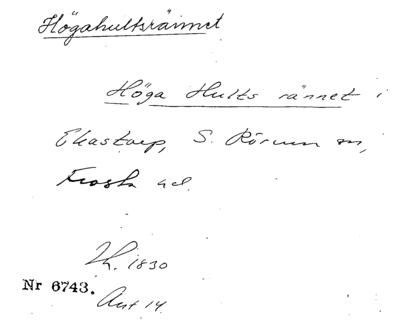 Högahultsrännet
Höga Hults rännet i
Ekastorp, S. Rörum sn,
Frosta hd.
Lh. 1830
Nr 6743.
Akt 14.